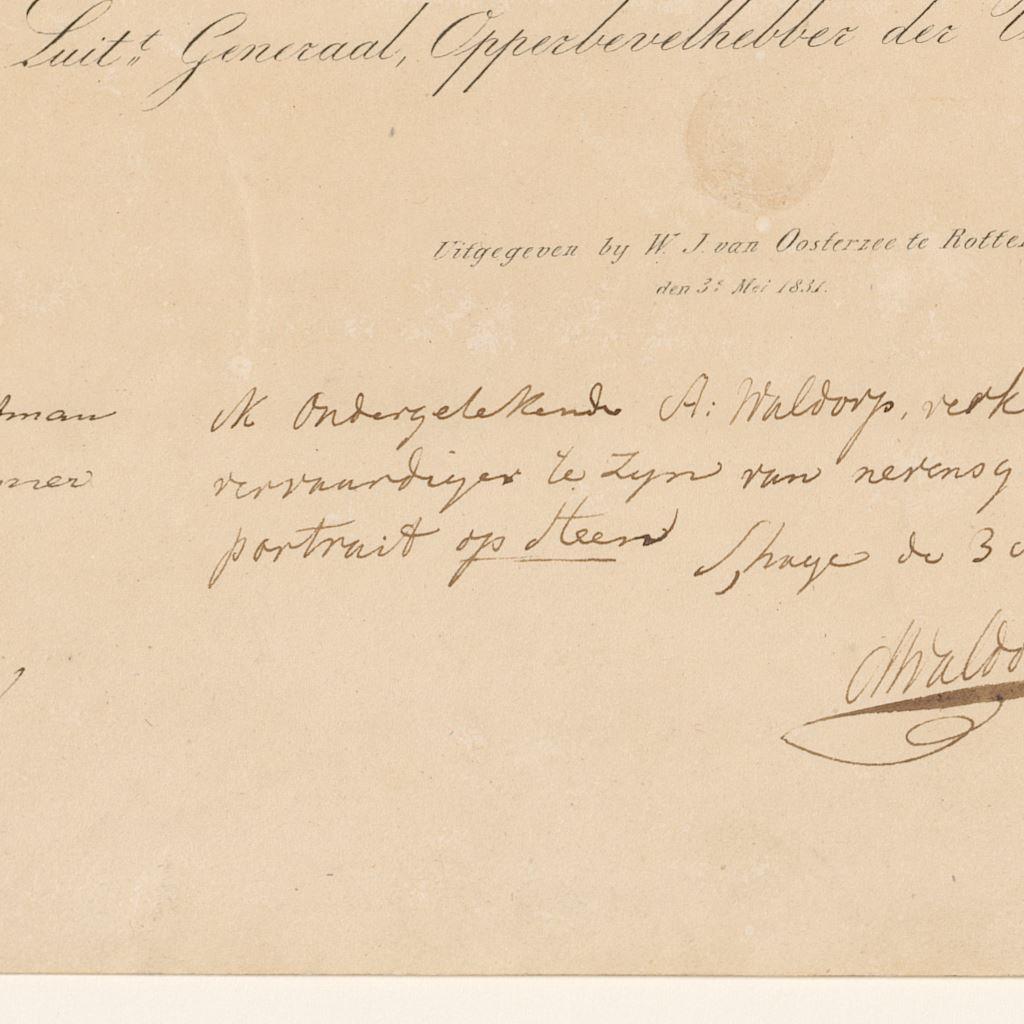 Luit.t Generaal, Opperbevelhebber der
Uitgegeven by W. J. van Oosterzee te Rotte
den 3e Mei 1831.
Ik Ondergetekende A: Waldorp, verk
vervaardiger te Zyn van nevensg
portrait op Steen
S,hage de 3
AWaldo